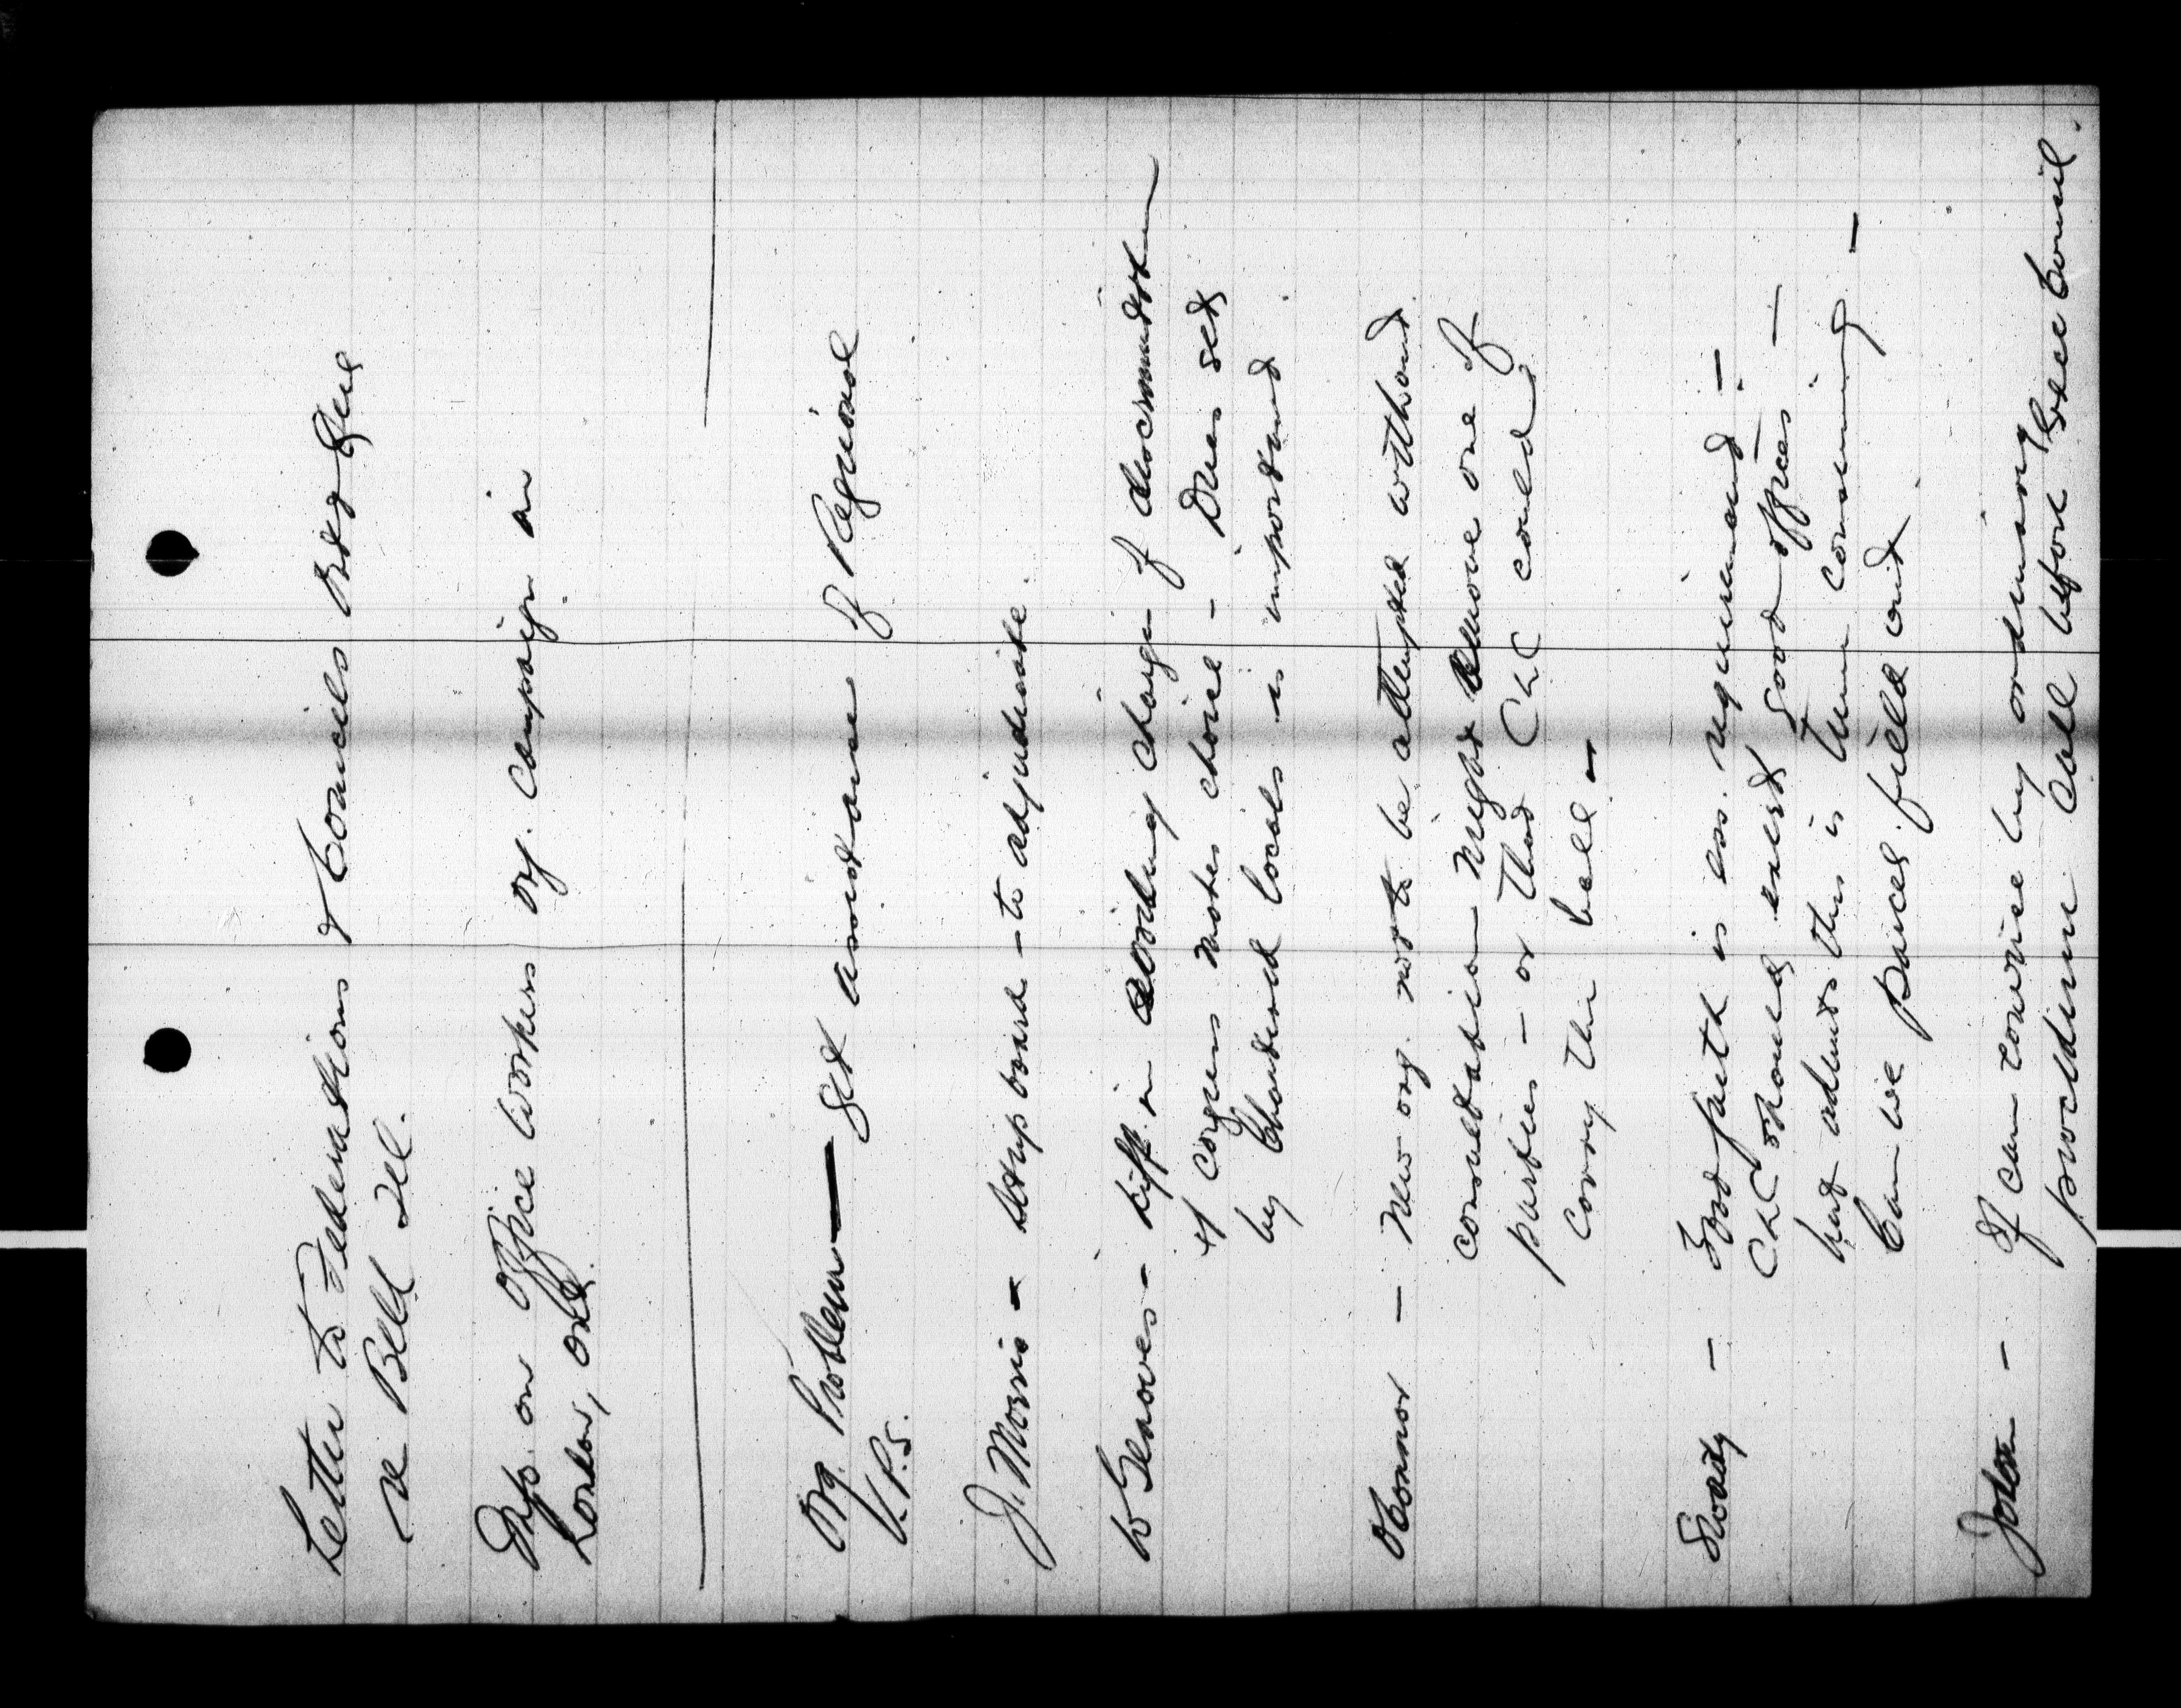 Letter to Federations & Councils Ont & Que
re Bell Tel.
Info. on Office Workers org. campaign in
London, Ont.
Org. Problem — get assistance of Regional
V.P.s.
J. Morris - set up board - to adjudicate.
W Greaves - Diff. in wording charge of discrimination
if Congress makes choice - Dues set
by Chartered locals is important
OConnor - New org. not to be attempted without
consultation might remove one of
parties - or that CLC could
carry the ball -
- Good faith is ess. requirement -
CLC should exert good offices -
but admits this is time consuming -
Can we parcel field out.
- If can convene by ordinary
procedure call before Exec Council.